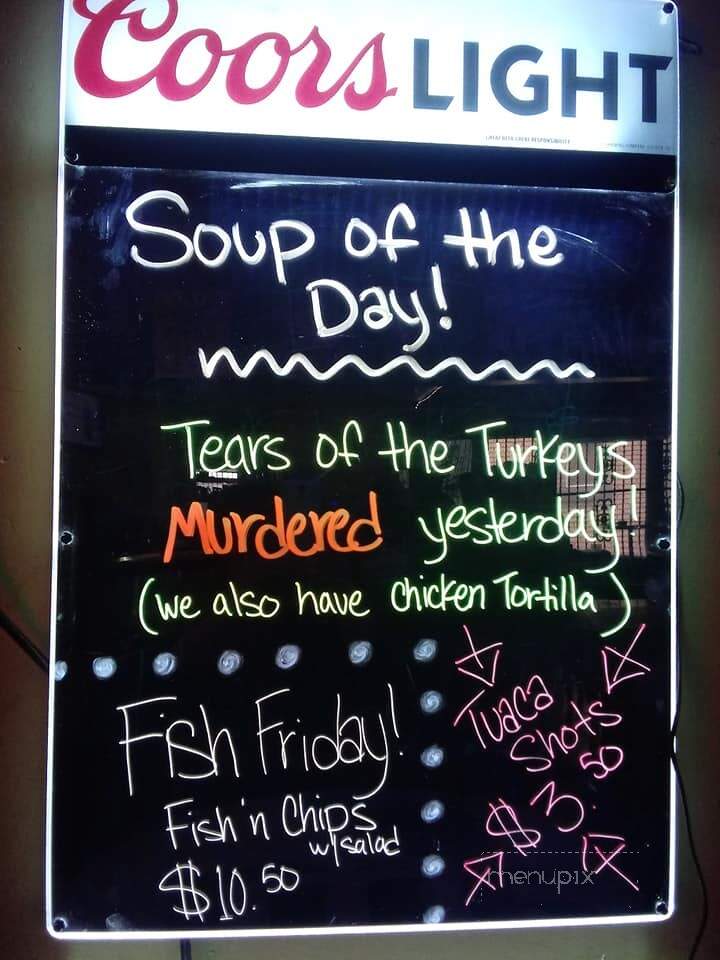 Coors LIGHT
GREAT BEER GREAT RESPONSIBILITY
Soup of the
Day!
Tears of the Turkeys
Murdered yesterday!
(we also have chicken Tortilla)
Fish Friday!
Fish 'n Chips
w/ salad
$10.50
Tuaca
Shots
$3.50
menupix